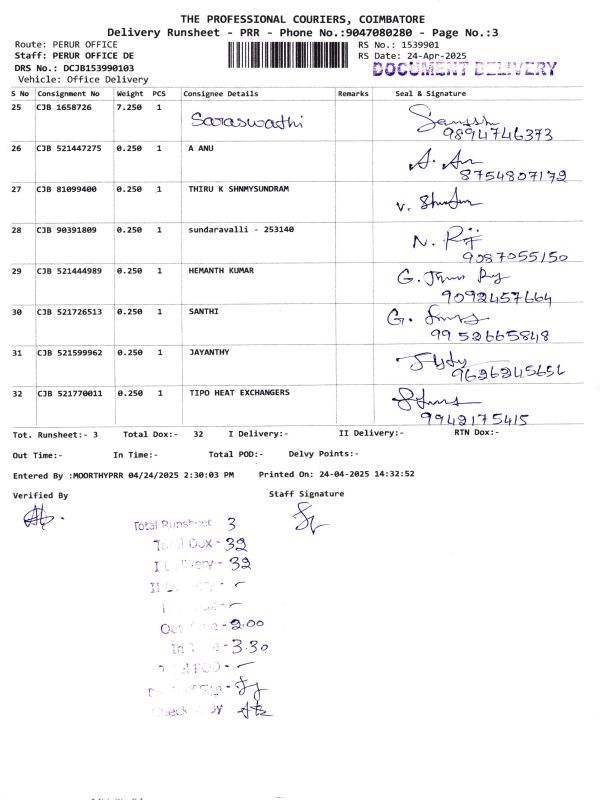 THE PROFESSIONAL COURIERS, COIMBATORE
Delivery Runsheet - PRR - Phone No.:9047080280 - Page No.:3
Route: PERUR OFFICE RS No.: 1539901
Staff: PERUR OFFICE DE RS Date: 24-Apr-2025
DRS No.: DCJB153990103 DOCUMENT DELIVERY
Vehicle: Office Delivery
S No Consignment No Weight PCS Consignee Details Remarks Seal & Signature
25 CJB 1658726 7.250 1 Saraswathi
9894746373
26 CJB 521447275 0.250 1 A ANU
8754807172
27 CJB 81099400 0.250 1 THIRU K SHNMYSUNDRAM
28 CJB 90391809 0.250 1 sundaravalli - 253140
9087055150
29 CJB 521444989 0.250 1 HEMANTH KUMAR
9092457664
30 CJB 521726513 0.250 1 SANTHI
9952665848
31 CJB 521599962 0.250 1 JAYANTHY
9626245656
32 CJB 521770011 0.250 1 TIPO HEAT EXCHANGERS
9942175415
Tot. Runsheet:- 3 Total Dox:- 32 I Delivery:- II Delivery:- RTN Dox:-
Out Time:- In Time:- Total POD:- Delvy Points:-
Entered By :MOORTHYPRR 04/24/2025 2:30:03 PM Printed On: 24-04-2025 14:32:52
Verified By Staff Signature
Total Runsheet 3
Total Dox - 32
I Delivery - 32
II Delivery - -
Out Time - 2.00
In Time - 3.30
Total POD - -
Check By